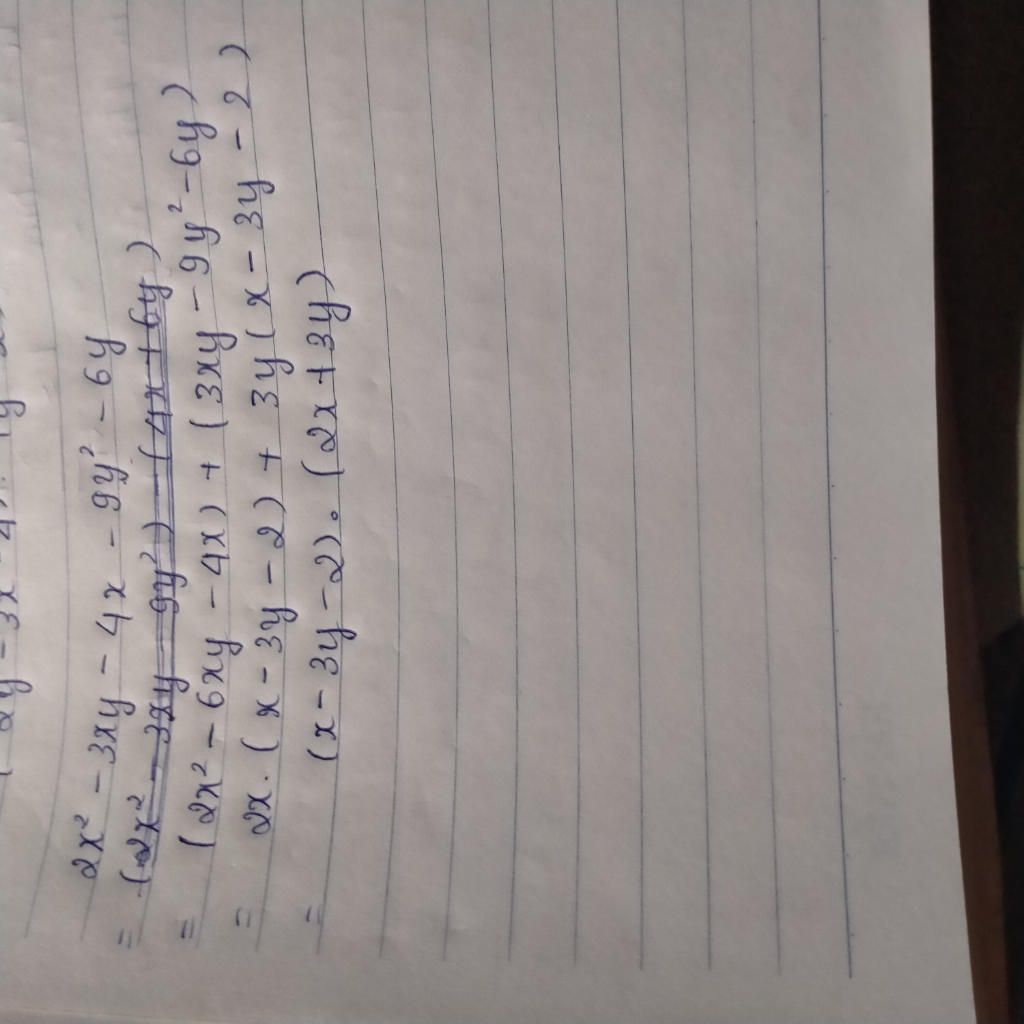 2x² - 3xy - 4x - 9y² - 6y
= (2x² - 3xy - 9y²) - (4x + 6y)
= (2x² - 6xy - 4x) + (3xy - 9y² - 6y)
= 2x.(x - 3y - 2) + 3y(x - 3y - 2)
= (x - 3y - 2).(2x + 3y)